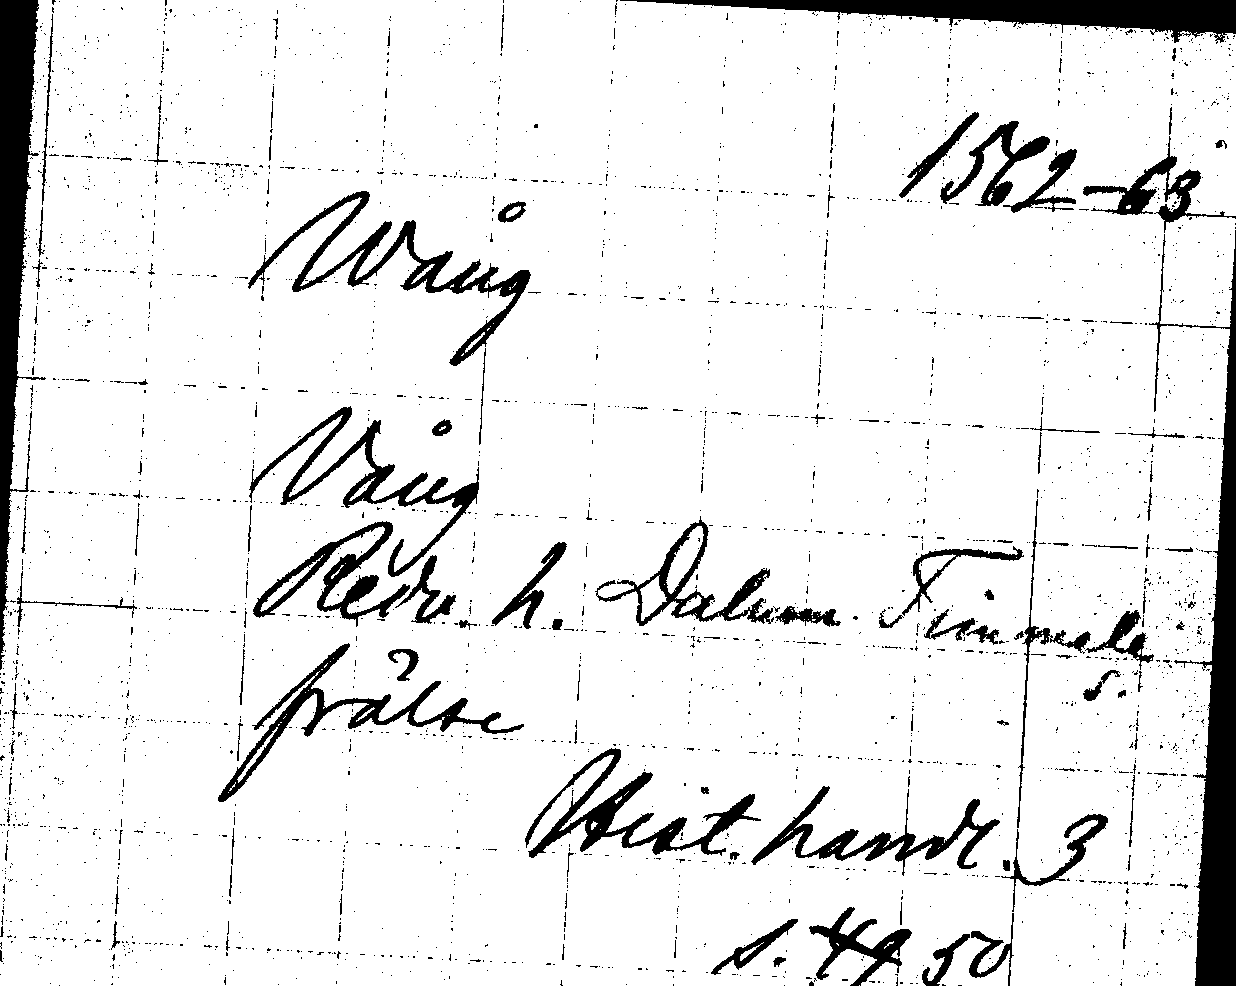 1562-63
Wång
Vång
Redv. h. Dalum. Timmele
s.
frälse
Hist. handl. 3
s. 49 50